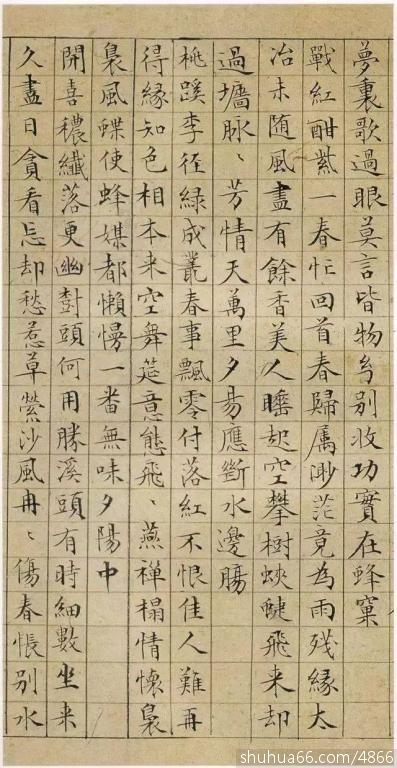 夢裏歌過眼莫言皆物幻別收功實在蜂窠
戰紅酣紫一春忙回首春歸屬渺茫竟為雨残緣太
冶未随風盡有餘香美人睡起空攀樹蛺蝶飛来却
過墻脉〻芳情天萬里夕昜應斷水邊腸
桃蹊李径緑成叢春事飄零付落紅不恨佳人難再
得緣知色相本来空舞筵意態飛〻燕禅榻情懷裊
裊風蝶使蜂媒都懶慢一番無味夕陽中
開喜穠纖落更幽樹頭何用勝溪頭有時細數坐来
久盡日貪看忘却愁惹草縈沙風冉〻傷春悵別水
shuhua66.com/4866